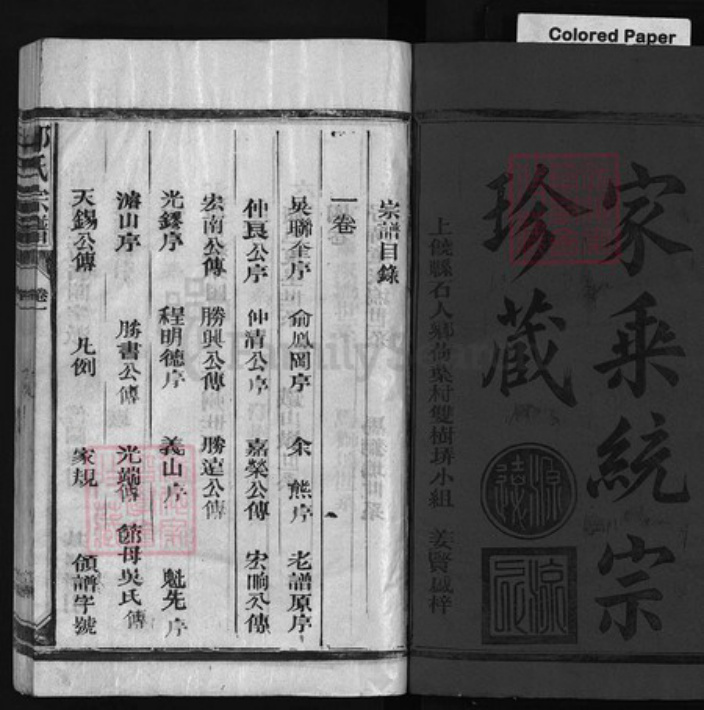 Colored Paper
家乘統宗
珍藏
上饒縣石人鄉荷柴村雙樹塝小組 姜賢盛梓
宗譜目錄
一卷
吳聯奎序 俞鳳岡序 余熊序 老譜原序
仲良公序 仲清公序 嘉榮公傳 宏晌公傳
宏南公傳 勝興公傳 勝遠公傳
光鏐序 程明德序 義山序 魁先序
濬山序 勝書公傳 光端傳 節母吳氏傳
天錫公傳 凡例 家規 領譜字號
氏宗譜 卷一